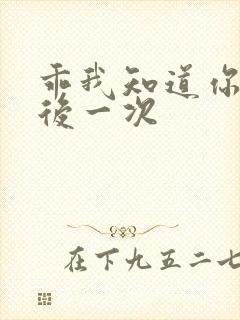 乖我知道你
後一次
在下九五二七